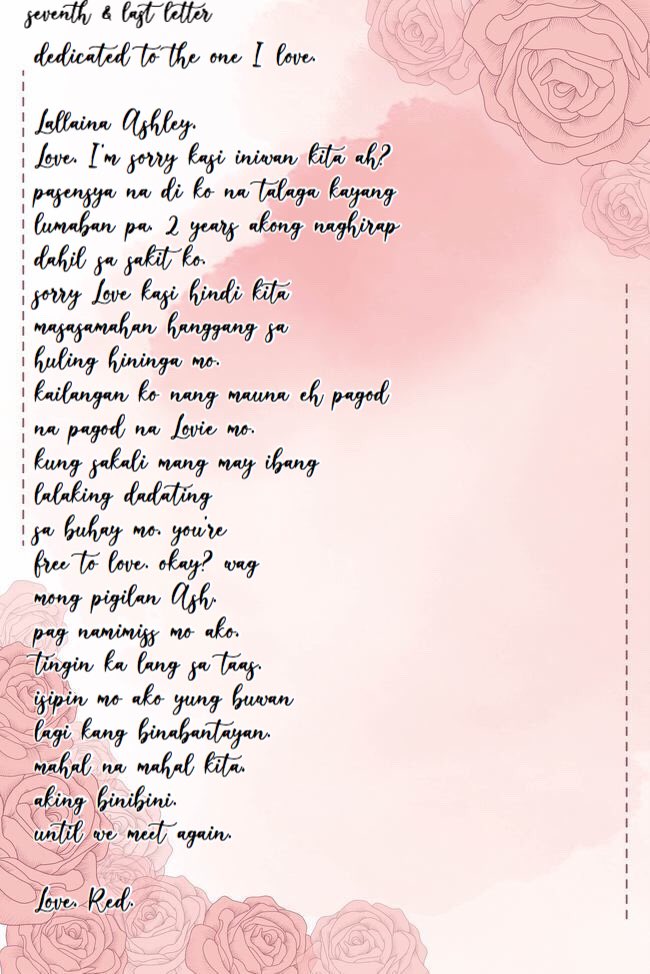 seventh & last letter
dedicated to the one I love.
Lallaina Ashley.
Love. I'm sorry kasi iniwan kita ah?
pasensya na di ko na talaga kayang
lumaban pa. 2 years akong naghirap
dahil sa sakit ko.
sorry Love kasi hindi kita
masasamahan hanggang sa
huling hininga mo.
kailangan ko nang mauna eh pagod
na pagod na Lovie mo.
kung sakali mang may ibang
lalaking dadating
sa buhay mo. you're
free to love. okay? wag
mong pigilan Ash.
pag namimiss mo ako.
tingin ka lang sa taas.
isipin mo ako yung buwan
lagi kang binabantayan.
mahal na mahal kita.
aking binibini.
until we meet again.
Love. Red.